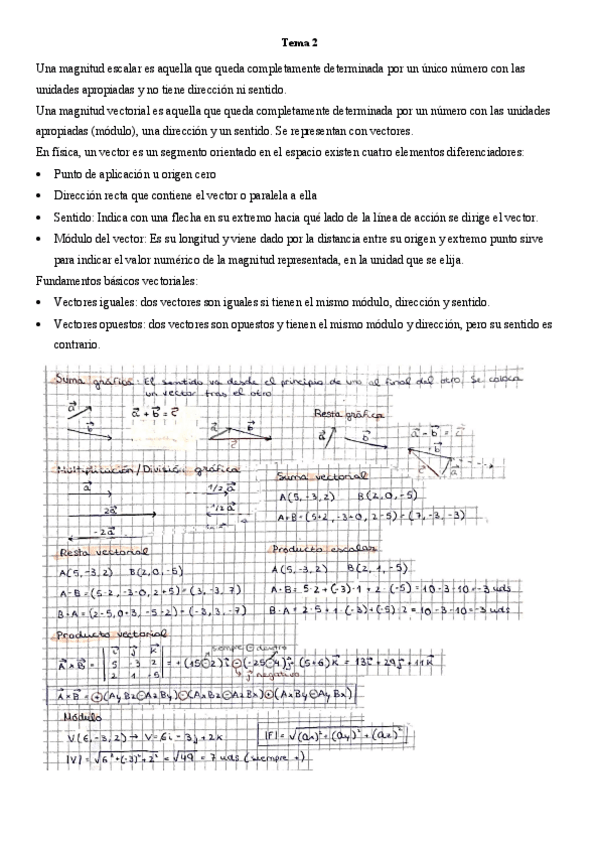 Tema 2
Una magnitud escalar es aquella que queda completamente determinada por un único número con las
unidades apropiadas y no tiene dirección ni sentido.
Una magnitud vectorial es aquella que queda completamente determinada por un número con las unidades
apropiadas (módulo), una dirección y un sentido. Se representan con vectores.
En física, un vector es un segmento orientado en el espacio existen cuatro elementos diferenciadores:
• Punto de aplicación u origen cero
• Dirección recta que contiene el vector o paralela a ella
• Sentido: Indica con una flecha en su extremo hacia qué lado de la línea de acción se dirige el vector.
• Módulo del vector: Es su longitud y viene dado por la distancia entre su origen y extremo punto sirve
para indicar el valor numérico de la magnitud representada, en la unidad que se elija.
Fundamentos básicos vectoriales:
• Vectores iguales: dos vectores son iguales si tienen el mismo módulo, dirección y sentido.
• Vectores opuestos: dos vectores son opuestos y tienen el mismo módulo y dirección, pero su sentido es
contrario.
Suma gráfica: El sentido va desde el principio de uno al final del otro. Se coloca
un vector tras el otro
a⃗ + b⃗ = c⃗
Resta gráfica
a⃗ - b⃗ = c⃗
Multiplicación / División gráfica
a⃗ 1/2 a⃗
2a⃗ -1/2 a⃗
-2a⃗
Suma vectorial
A(5,-3,2) B(2,0,-5)
A+B=(5+2,-3+0,2-5)=(7,-3,-3)
Resta vectorial
A(5,-3,2) B(2,0,-5)
A-B=(5-2,-3-0,2+5)=(3,-3,7)
B-A=(2-5,0+3,-5-2)=(-3,3,-7)
Producto escalar
A(5,-3,2) B(2,1,-5)
A·B= 5·2+(-3)·1+2·(-5)=10-3-10=-3 uds
B·A= 2·5+1·(-3)+(-5)·2=10-3-10=-3 uds
Producto vectorial
siempre ⊖ dentro
A⃗ x B⃗ = | i⃗ j⃗ k⃗ | 5 -3 2 | 2 1 -5 | = +(15⊖2)i⃗ ⊖(-25⊖4)j⃗ (5+6)k⃗ = 13i⃗ + 29j⃗ + 11k⃗
j⃗ negativo
A⃗ x B⃗ = ⊕(AyBz⊖AzBy)⊖(AxBz⊖AzBx)⊕(AxBy⊖AyBx)
Módulo
V(6,-3,2) → V=6i-3j+2k
|F|=√(ax)²+(ay)²+(az)²
|V|=√6²+(-3)²+2² = √49 = 7 uds (siempre +)